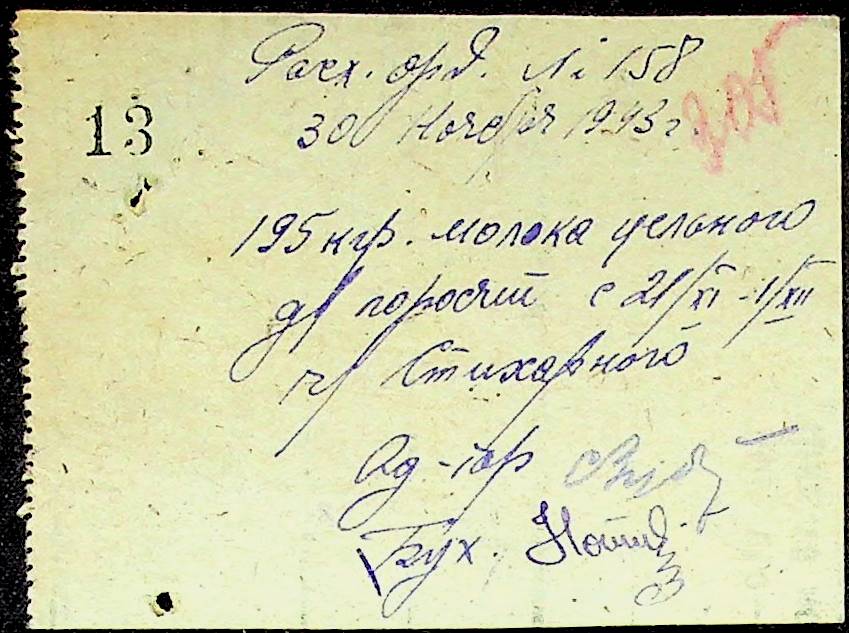 Расх. орд. № 158
13
30 Ноября 1943 г.
205
195 кгр. молока цельного
д/ поросят с 21/XI - 1/XII
ч/ Стихарного
Ад-тор
Бух.